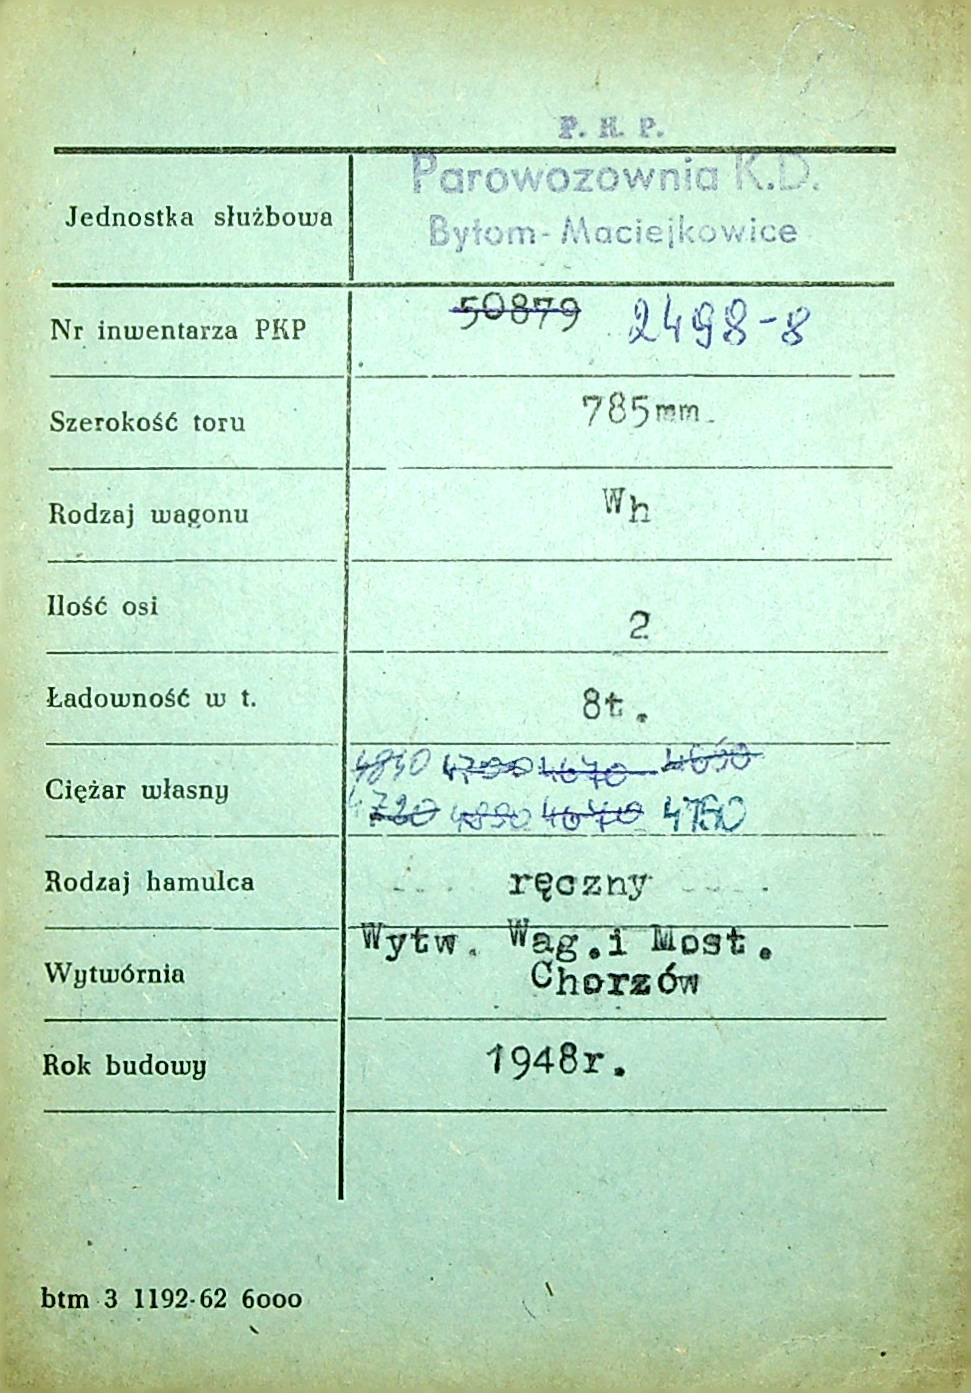 P. K. P.
Parowozownia K.D.
Jednostka służbowa
Bytom-Maciejkowice
Nr inwentarza PKP 50879 2498-8
Szerokość toru 785mm.
Rodzaj wagonu Wh
Ilość osi 2
Ładowność w t. 8t.
4840 4700 4670 4650
Ciężar własny
4720 4890 4640 4750
Rodzaj hamulca ręczny
Wytw. Wag.i Most.
Wytwórnia
Chorzów
Rok budowy 1948r.
btm 3 1192-62 6000